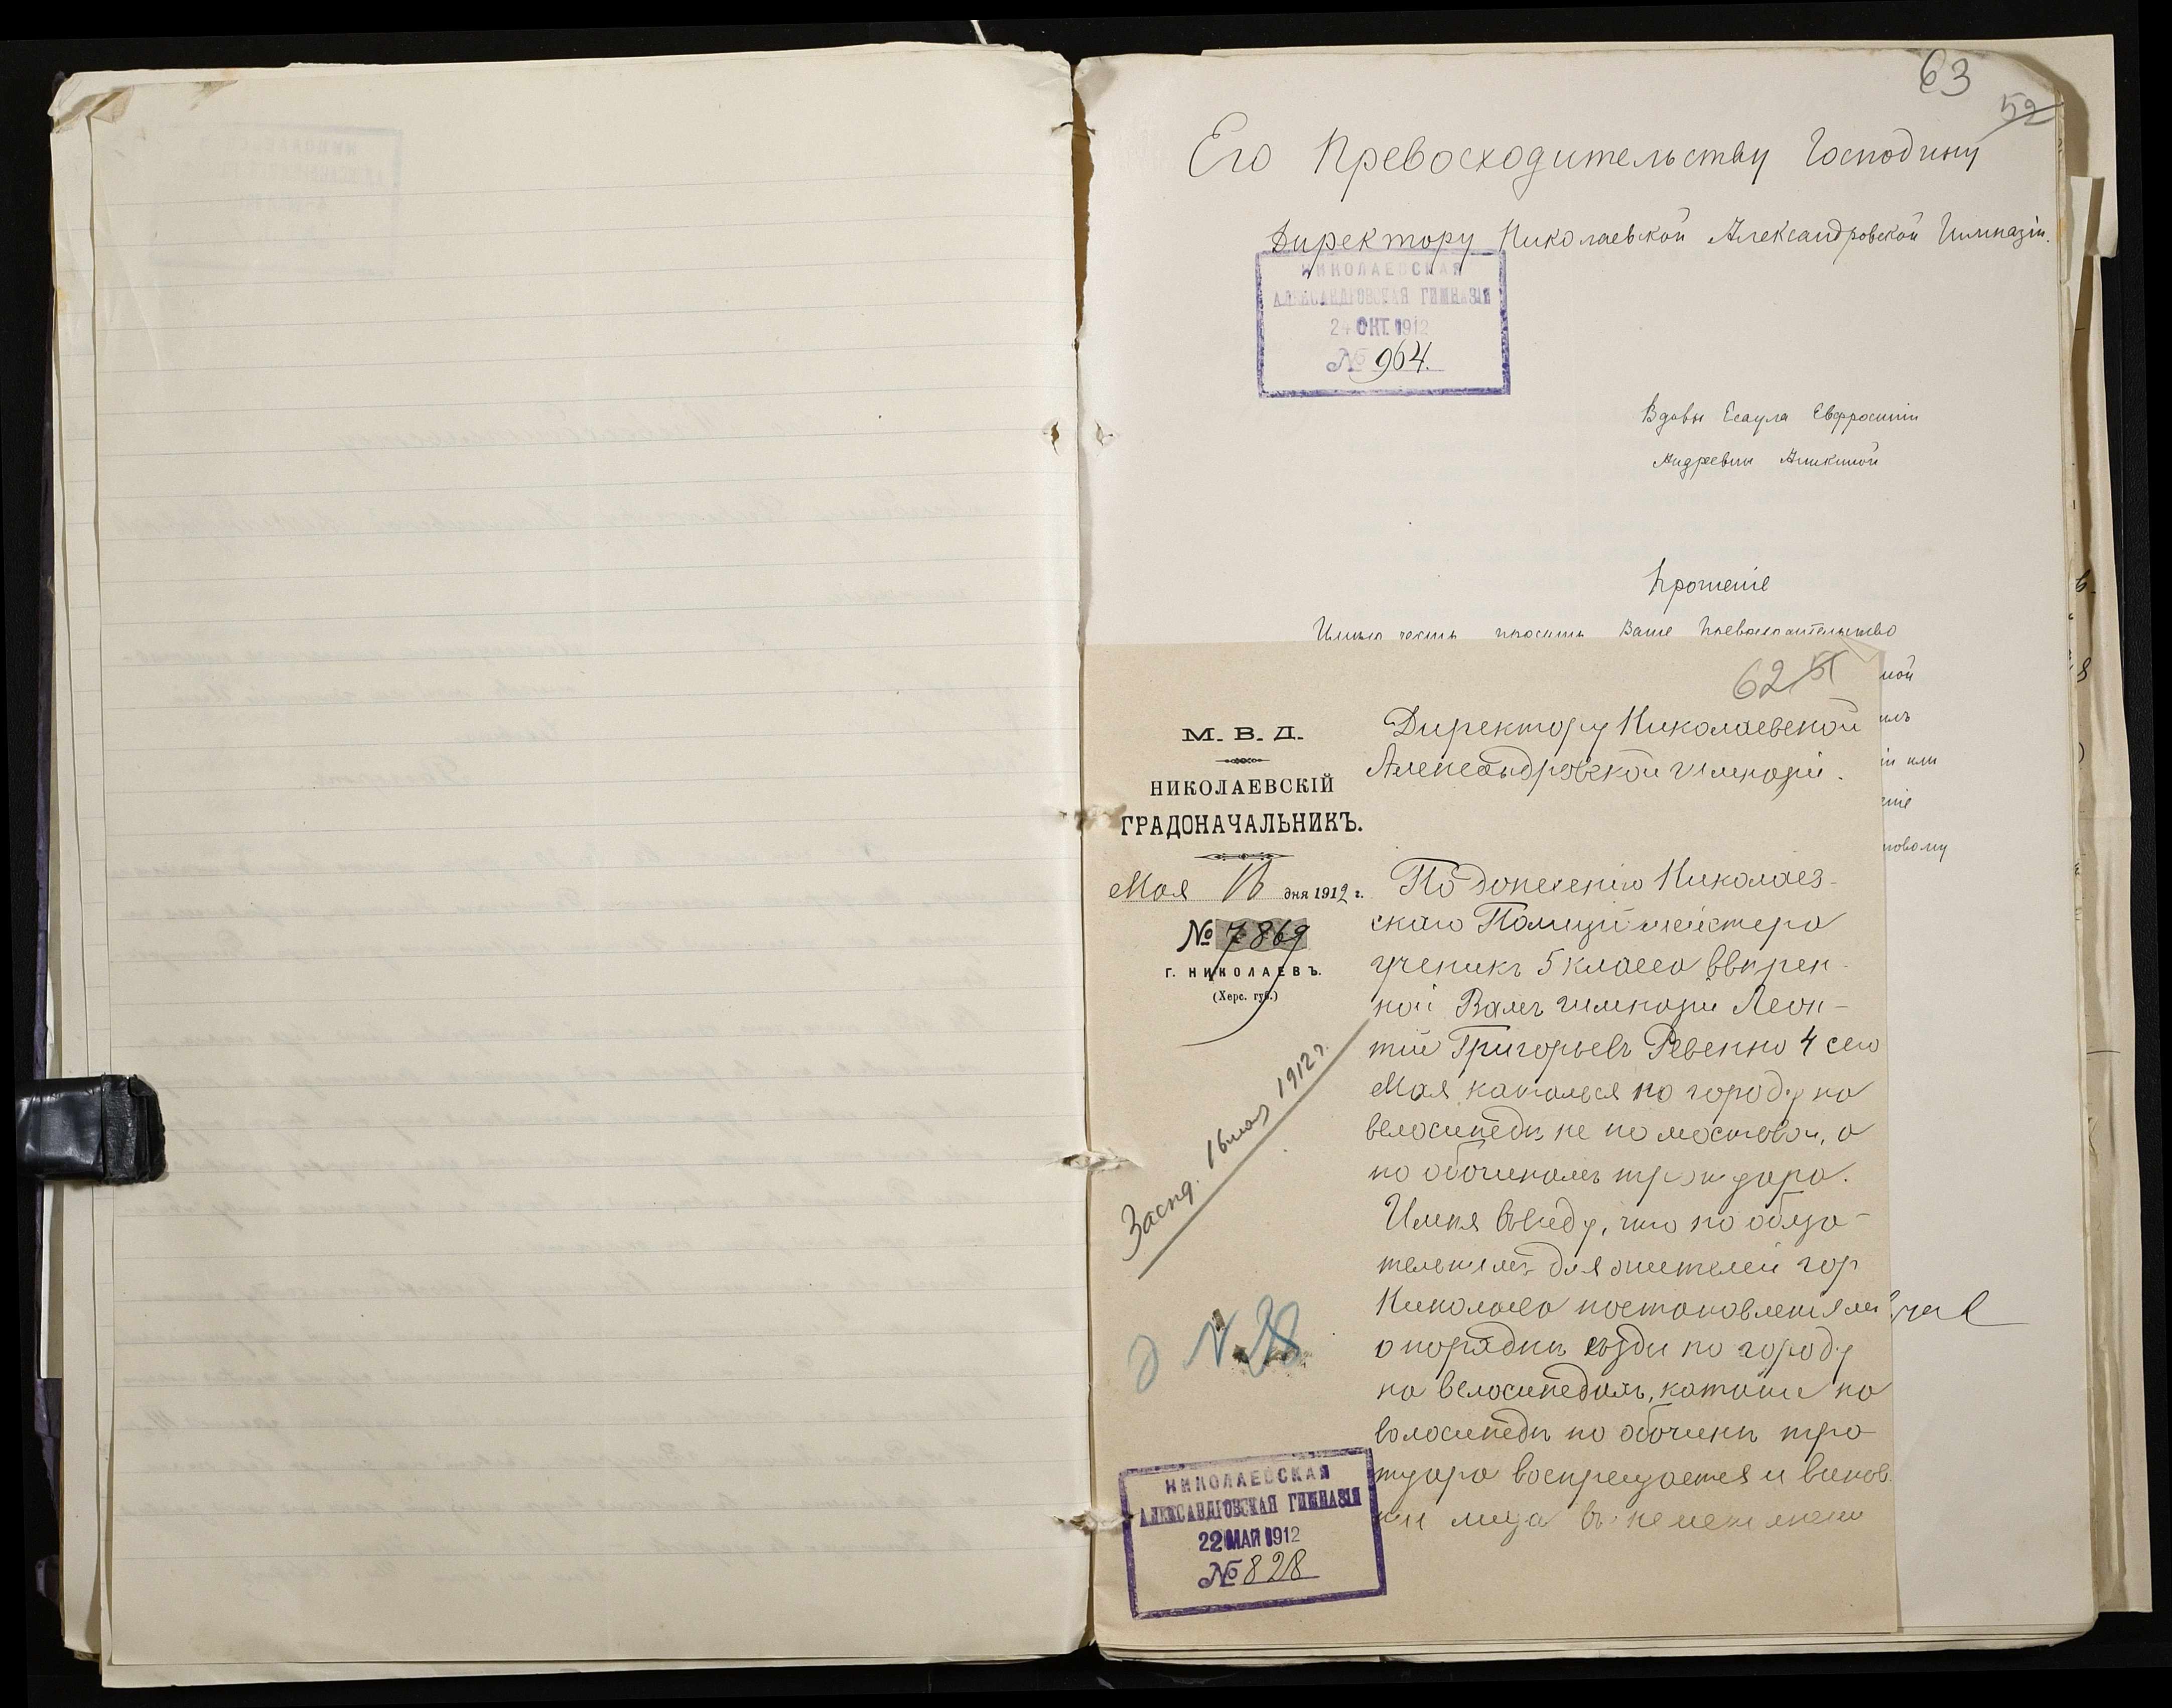 63
52
Его Превосходительству Господину
Директору Николаевской Александровской Гимназіи.
НИКОЛАЕВСКАЯ
АЛЕКСАНДРОВСКАЯ ГИМНАЗІЯ
24 ОКТ. 1912
№ 964.
Вдовы Есаула Евфросиніи
Андреевны Аникиной
Прошеніе
Имѣю честь просить Ваше Превосходительство
62 51
М. В. Д.
НИКОЛАЕВСКІЙ
ГРАДОНАЧАЛЬНИКЪ.
Мая дня 1912 г.
№ 7869
Г. НИКОЛАЕВЪ.
(Херс. губ.)
1912 г.
№ 28
Директору Николаевской
Александровской гимназіи.
По донесенію Николаев-
скаго Полицiймейстера
ученикъ 5 класса ввѣрен-
ной Вамъ гимназіи Леон-
тій Григорьевъ Ревенко 4 сего
Мая катался по городу на
велосипедѣ не по мостовой, а
по обочинамъ тротуара.
Имѣя ввиду, что по обяза-
тельнымъ для жителей гор
Николаева постановленіямъ
о порядкѣ ѣзды по городу
на велосипедахъ, катаніе на
велосипедѣ по обочинѣ тро
туара воспрещается и винов
ныя лица въ
НИКОЛАЕВСКАЯ
АЛЕКСАНДРОВСКАЯ ГИМНАЗІЯ
22 МАЯ 1912
№ 828